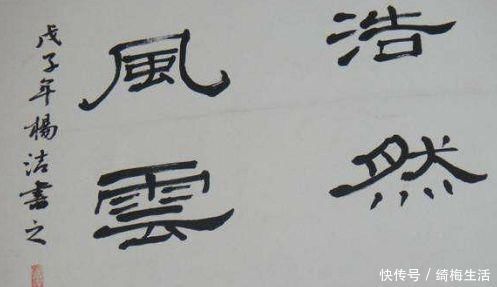 浩然
風雲
戊子年楊洁書之
快传号/绮梅生活